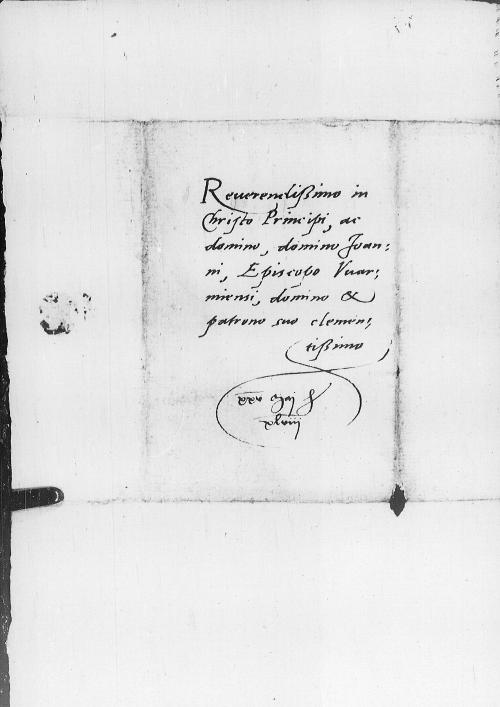 Reverendißimo in
Christo Principi, ac
domino, domino Joan-
ni, Episcopo Vuar-
miensi, domino &
patrono suo clemen-
tißimo
xxv Maij
xlviii